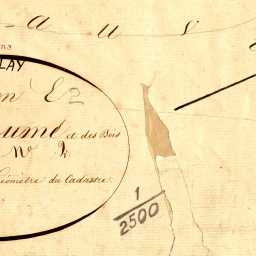 a u s
LAY
on E2
aume et des Bois
No 2
Géomètre du Cadastre
1
2500